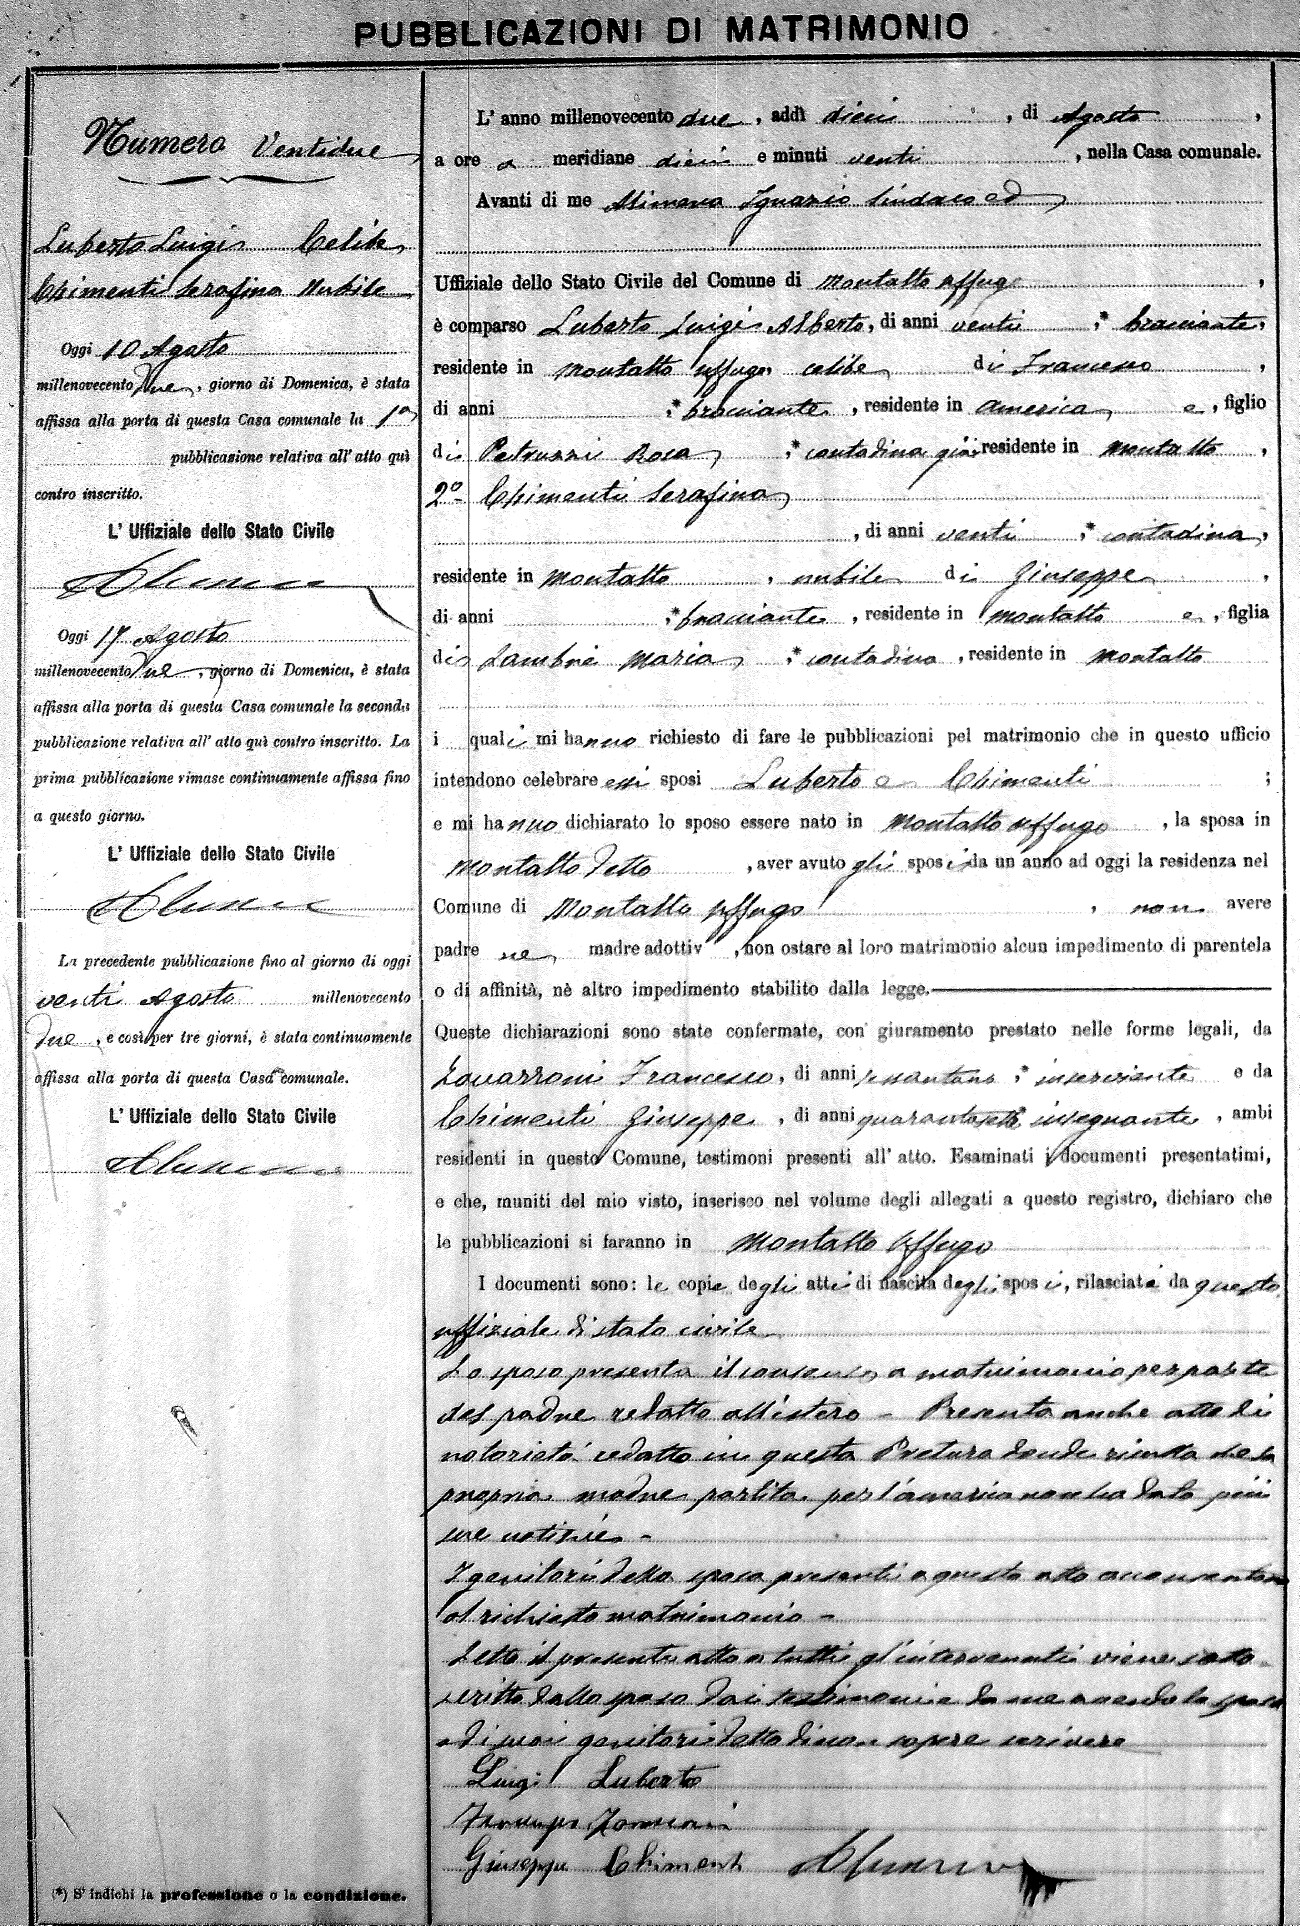 PUBBLICAZIONI DI MATRIMONIO
Numero Ventidue
Luberto Luigi Celibe
Chimenti Serafina Nubile
Oggi 10 Agosto
millenovecento due, giorno di Domenica, è stata
affissa alla porta di questa Casa comunale la 1a
pubblicazione relativa all' atto quì
contro inscritto.
L' Uffiziale dello Stato Civile
Oggi 17 Agosto
millenovecento due, giorno di Domenica, è stata
affissa alla porta di questa Casa comunale la seconda
pubblicazione relativa all' atto quì contro inscritto. La
prima pubblicazione rimase continuamente affissa fino
a questo giorno.
L' Uffiziale dello Stato Civile
La precedente pubblicazione fino al giorno di oggi
venti Agosto millenovecento
due, e così per tre giorni, è stata continuamente
affissa alla porta di questa Casa comunale.
L' Uffiziale dello Stato Civile
(*) S' indichi la professione o la condizione.
L' anno millenovecento due, addì dieci, di Agosto,
a ore a meridiane dieci e minuti venti, nella Casa comunale.
Avanti di me Ignazio Sindaco ed
Uffiziale dello Stato Civile del Comune di Montalto Uffugo,
è comparso Luberto Luigi Alberto, di anni venti, * bracciante,
residente in Montalto Uffugo, celibe di Francesco,
di anni , * bracciante, residente in America e, figlio
di Petruzzi Rosa, * contadina già residente in Montalto,
2o Chimenti Serafina
, di anni venti, * contadina,
residente in Montalto, nubile di Giuseppe,
di anni , * bracciante, residente in Montalto e, figlia
di Maria, * contadina, residente in Montalto
i quali mi hanno richiesto di fare le pubblicazioni pel matrimonio che in questo ufficio
intendono celebrare essi sposi Luberto e Chimenti ;
e mi hanno dichiarato lo sposo essere nato in Montalto Uffugo, la sposa in
Montalto detto, aver avuto gli sposi da un anno ad oggi la residenza nel
Comune di Montalto Uffugo, non avere
padre ne madre adottiv , non ostare al loro matrimonio alcun impedimento di parentela
o di affinità, nè altro impedimento stabilito dalla legge.
Queste dichiarazioni sono state confermate, con giuramento prestato nelle forme legali, da
Francesco, di anni sessantuno, * inserviente e da
Chimenti Giuseppe, di anni insegnante, ambi
residenti in questo Comune, testimoni presenti all' atto. Esaminati i documenti presentatimi,
e che, muniti del mio visto, inserisco nel volume degli allegati a questo registro, dichiaro che
le pubblicazioni si faranno in Montalto Uffugo
I documenti sono: le copie degli atti di nascita degli sposi, rilasciate da questo
uffiziale di stato civile
Lo sposo presenta il consenso a matrimonio per parte
del padre redatto all'estero - Presenta anche atto di
notorietà redatto in questa Pretura donde risulta che la
propria madre partita per l'america non ha dato più
sue notizie -
I genitori della sposa presenti a questo atto acconsentono
al richiesto matrimonio -
Letto il presente atto a tutti gl'intervenuti viene sotto
scritto dallo sposo dai testimoni e da me avendo la sposa
e di suoi genitori detto di non sapere scrivere
Luigi Luberto
Giuseppe Chimenti